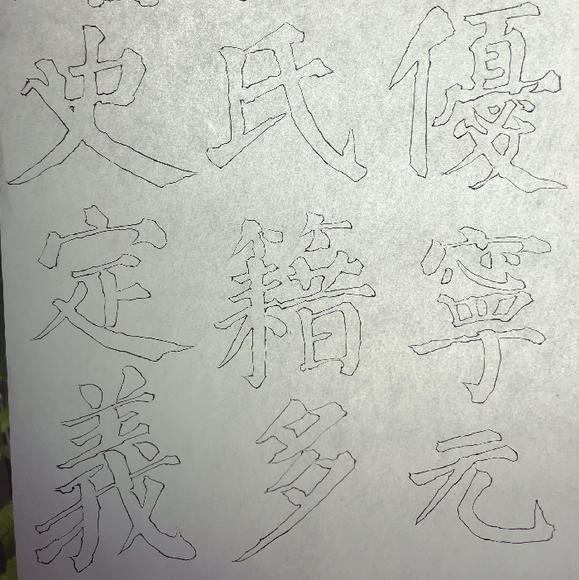 優寧元
氏籍多
史定義